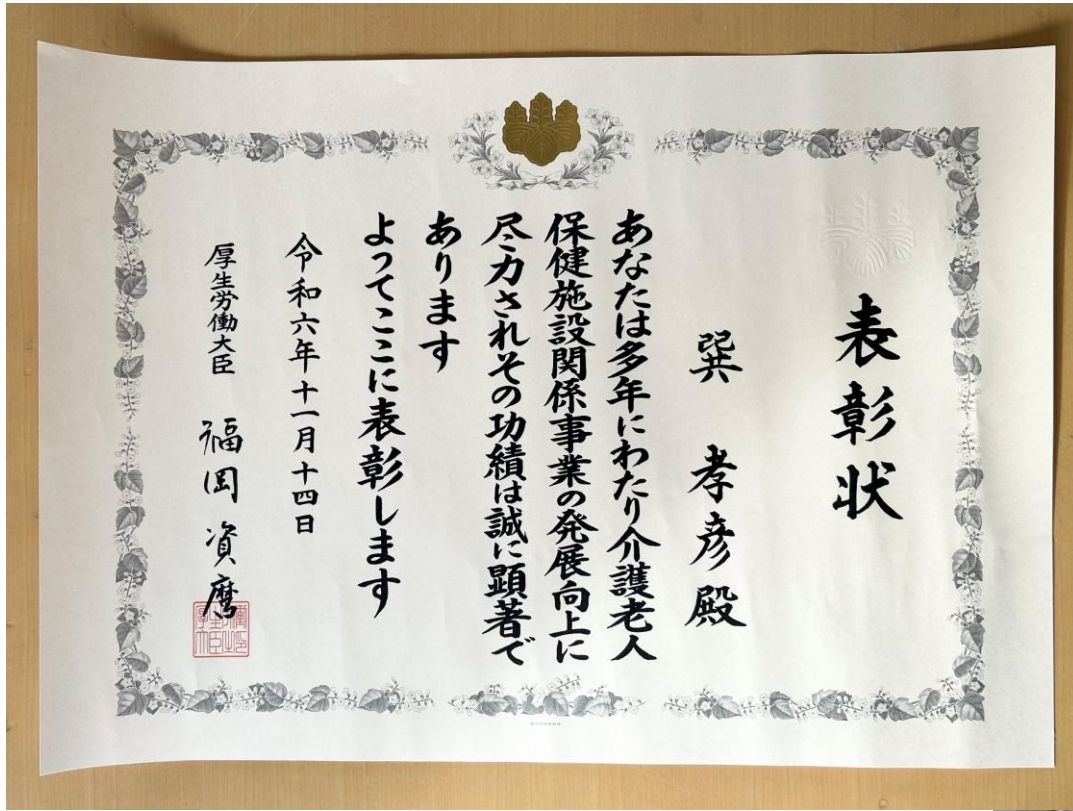 表彰状
巽 孝彦殿
あなたは多年にわたり介護老人
保健施設関係事業の発展向上に
尽力されその功績は誠に顕著で
あります
よってここに表彰します
令和六年十一月十四日
厚生労働大臣 福岡資麿